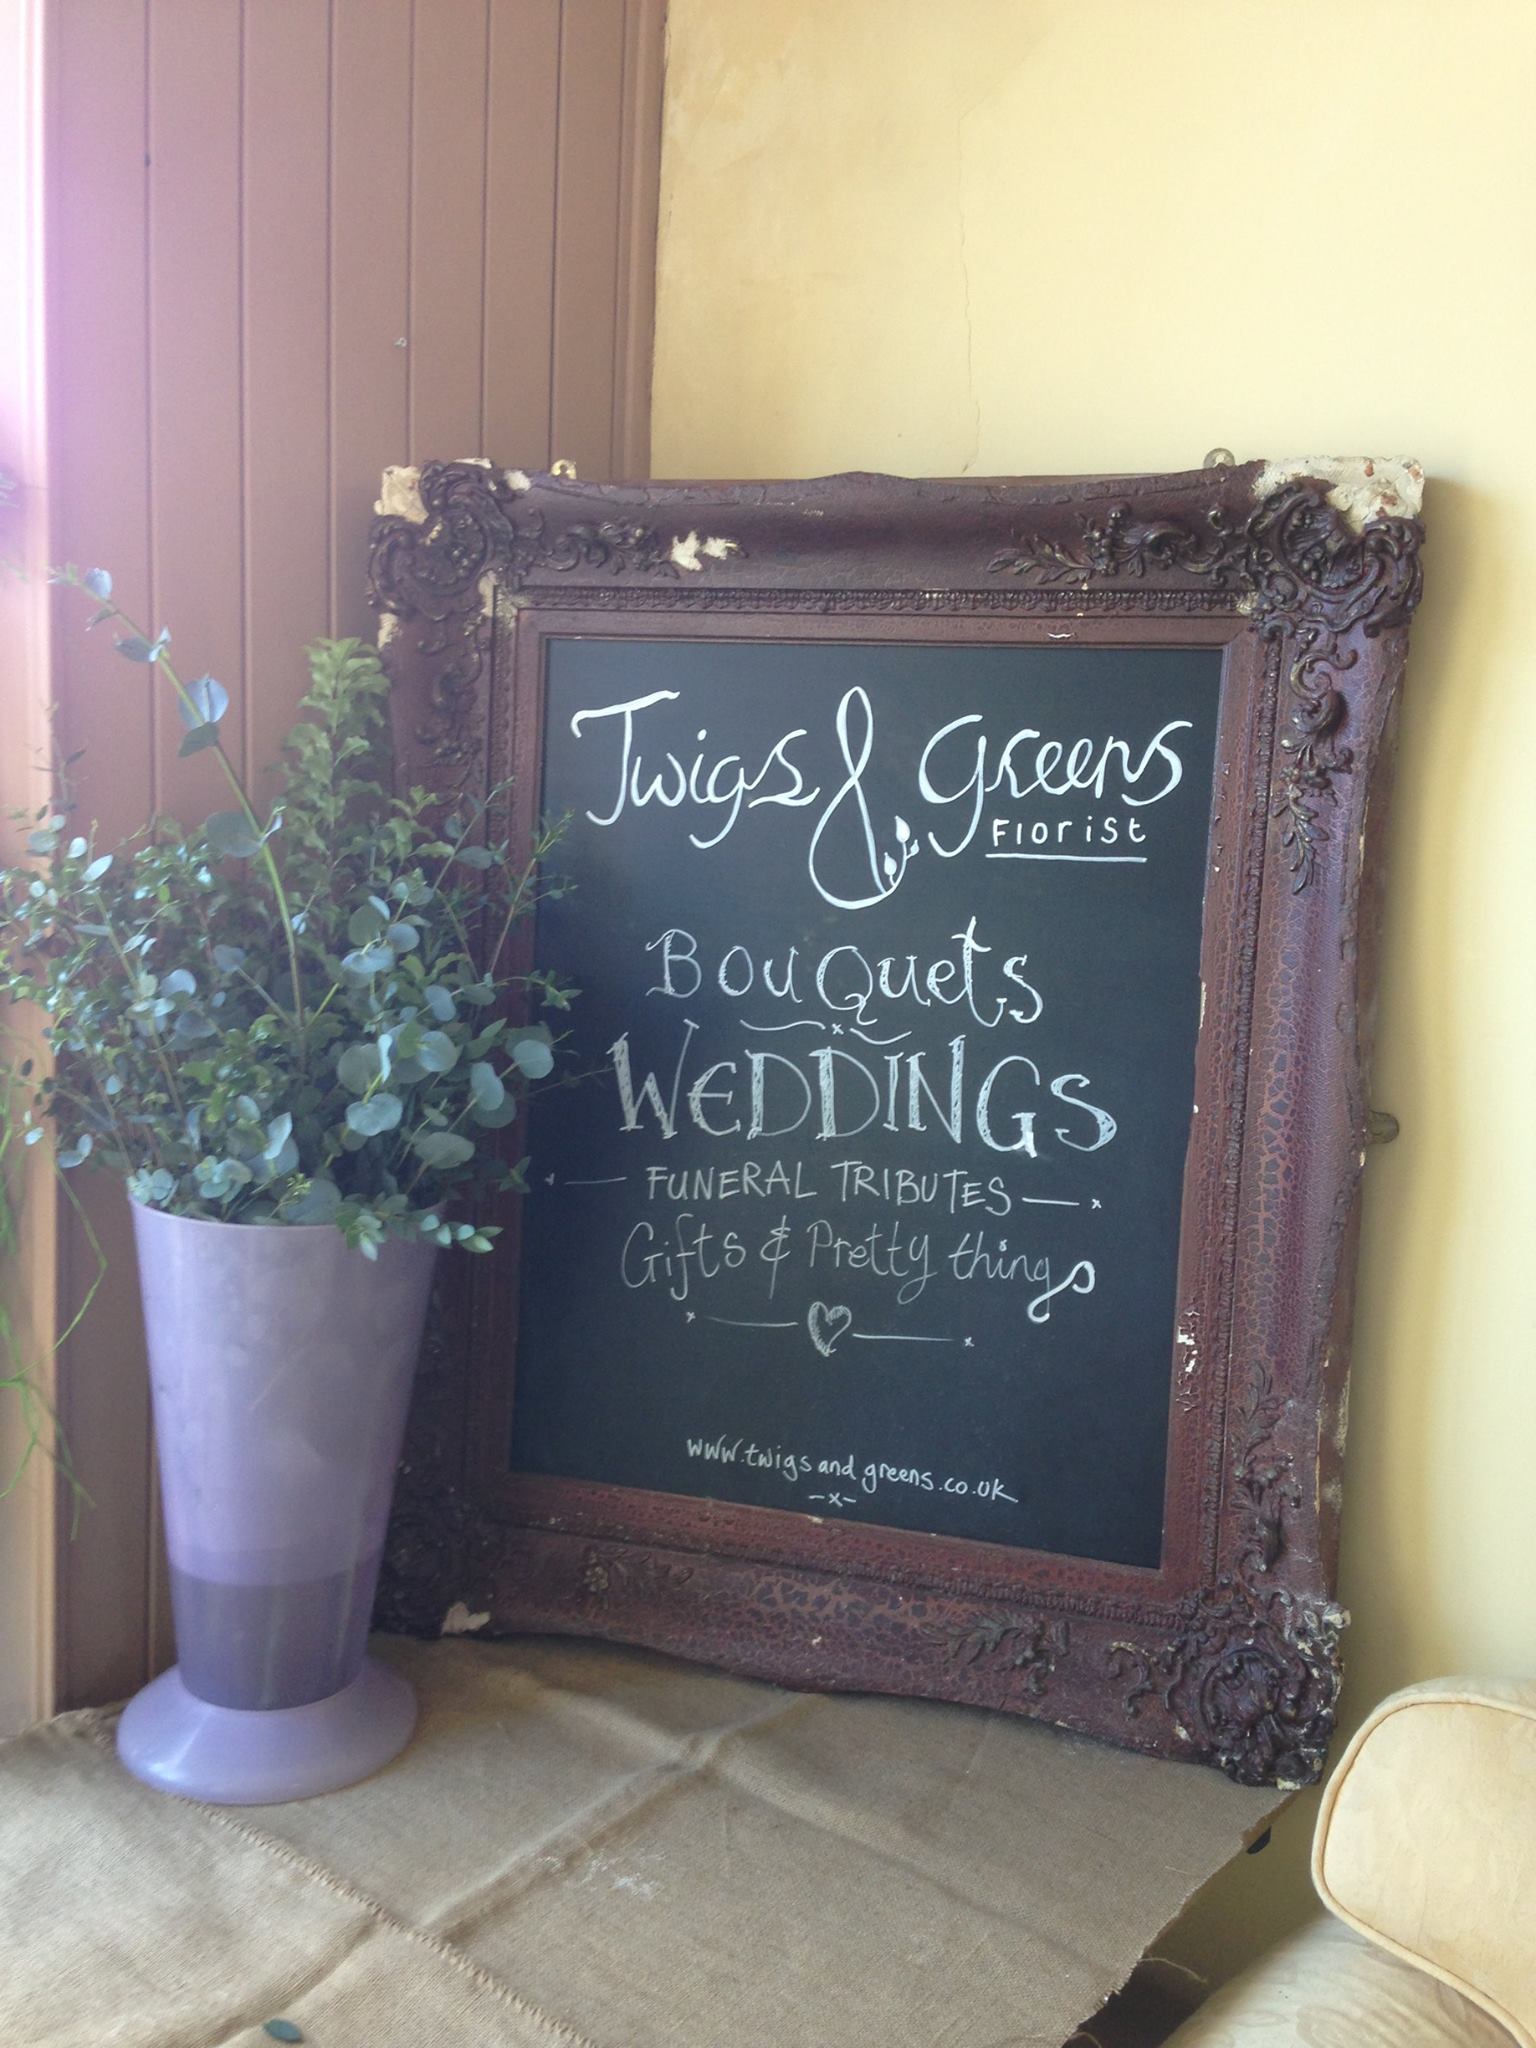 Twigs & Greens
Florist
BouQuets
WEDDINGS
FUNERAL TRIBUTES
Gifts & Pretty things
www.twigsandgreens.co.uk